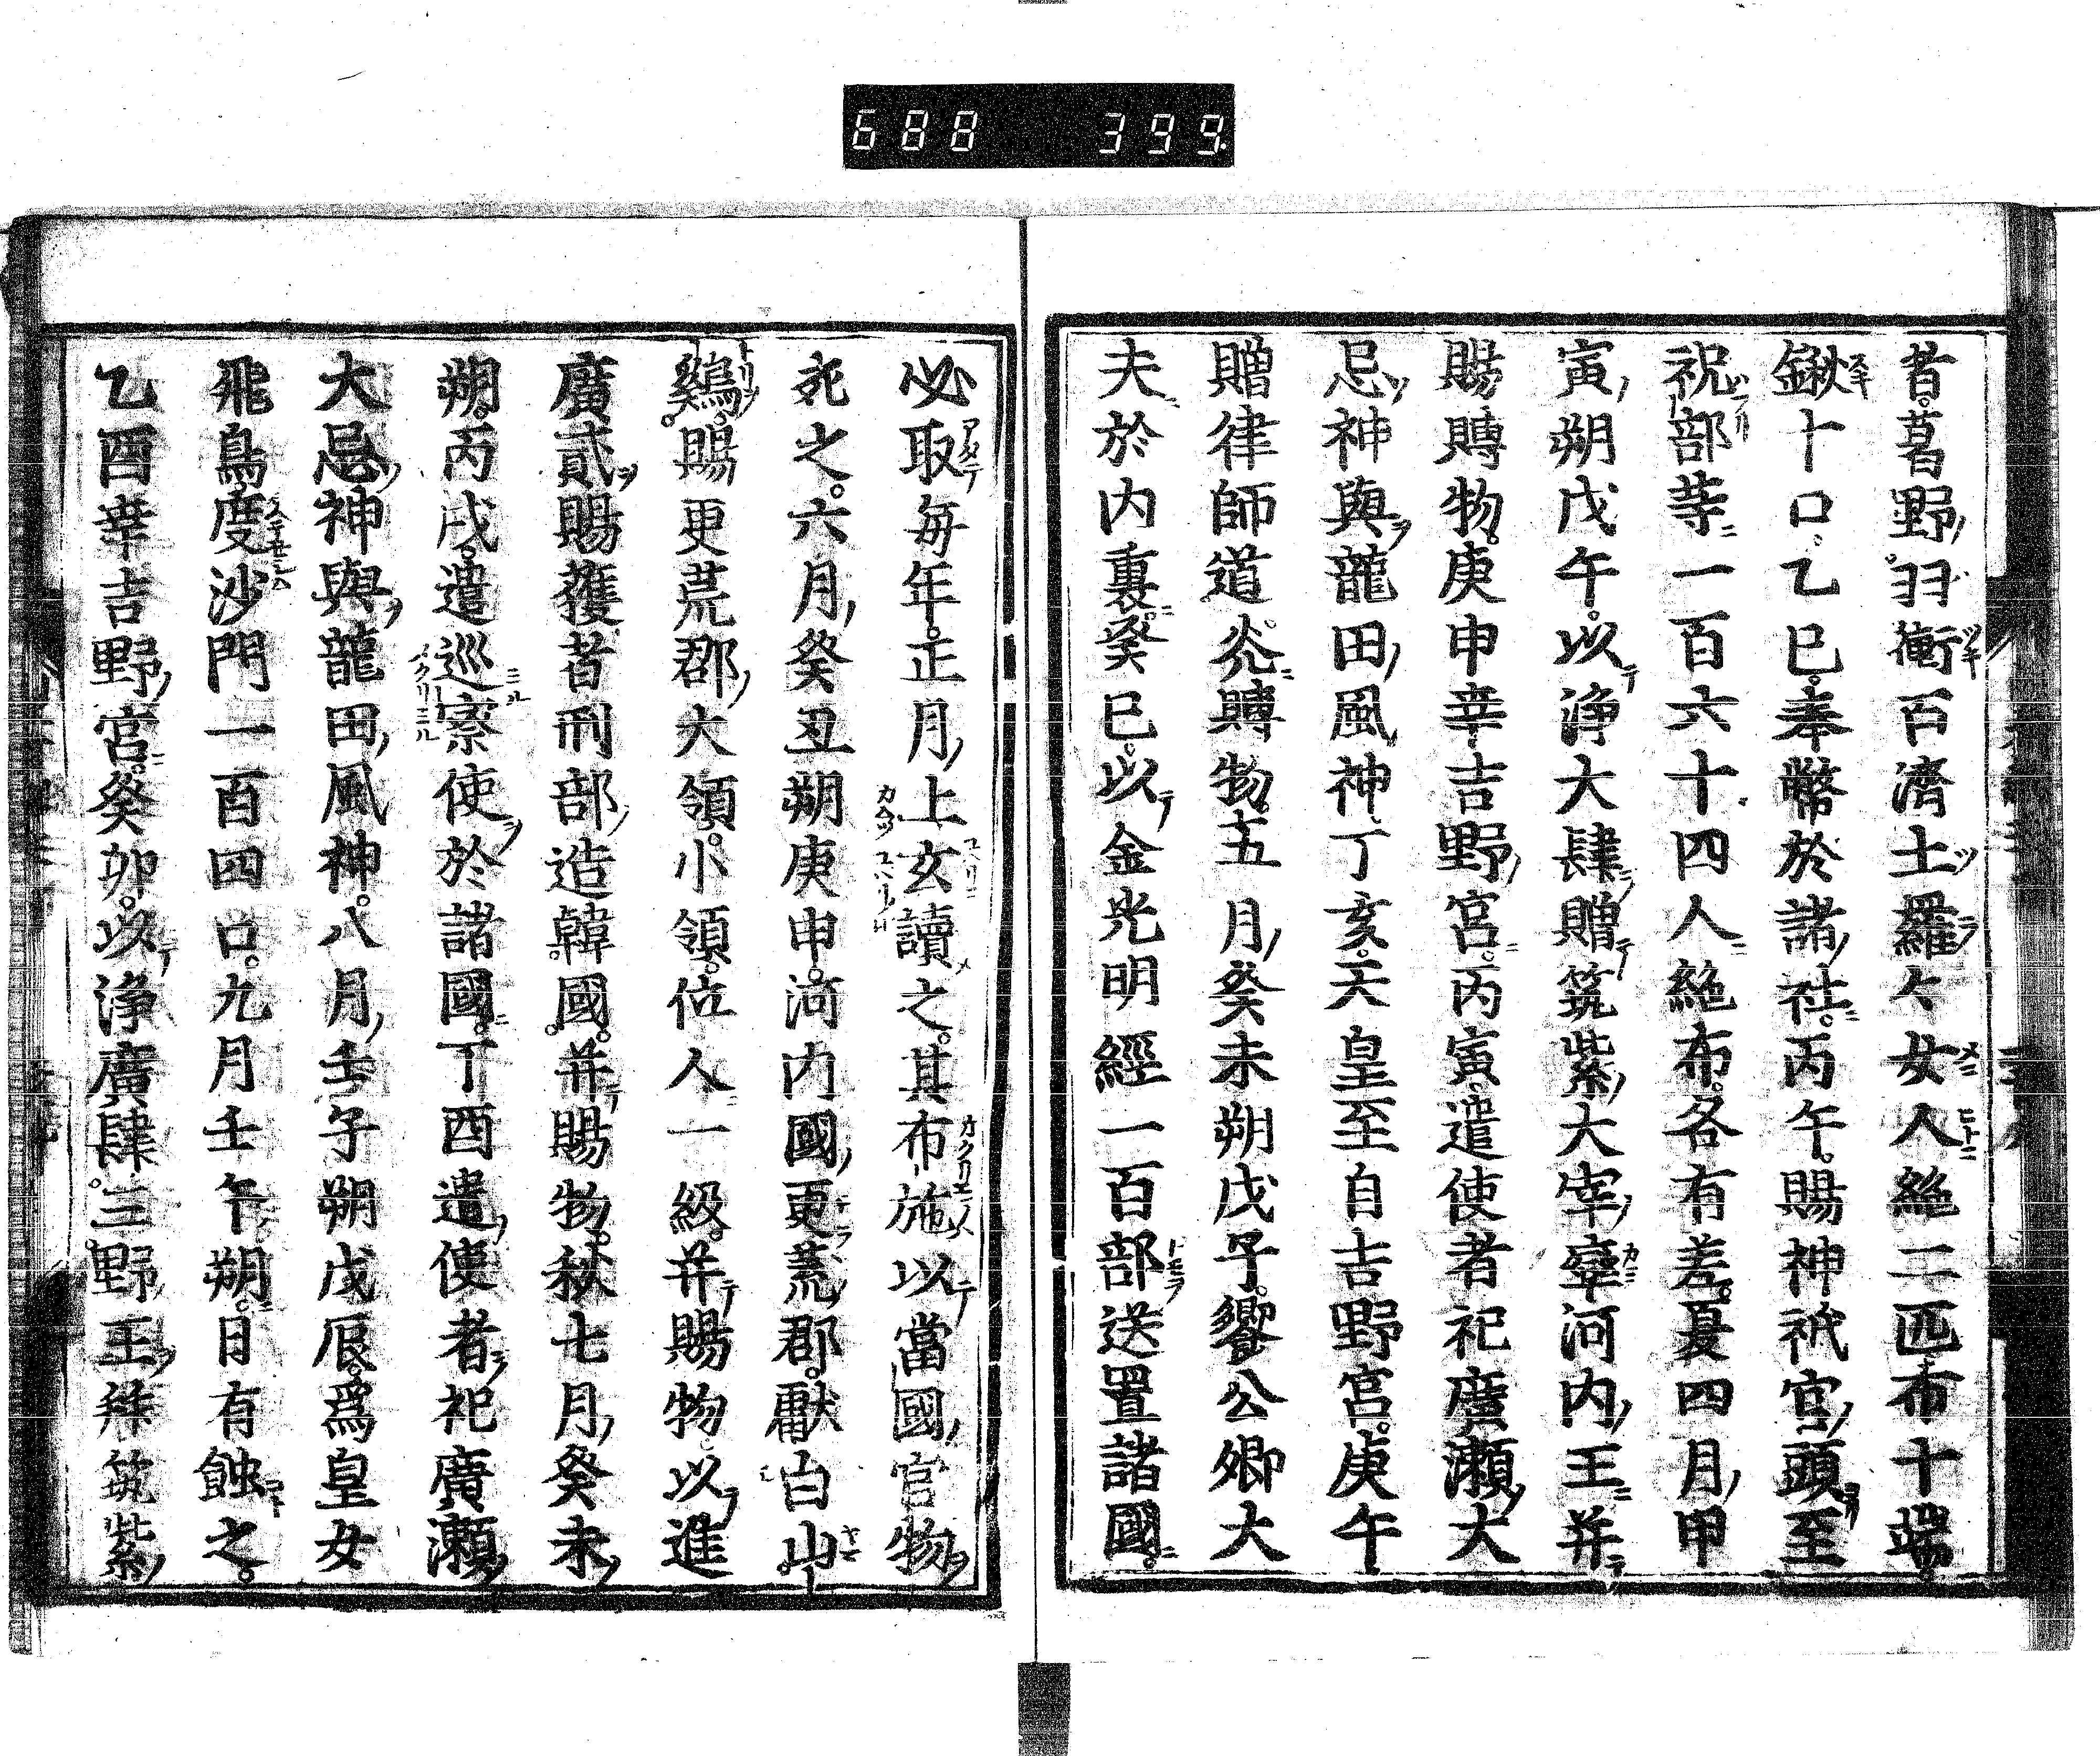 688 399
者葛野羽衝百濟土羅々女人絁二匹布十端
鍬十口乙巳奉幣於諸社丙午賜神祇官頭至
祝部等一百六十四人絁布各有差夏四月甲
寅朔戊午以淨大肆贈筑紫大宰率河内王并
賜賻物庚申幸吉野宮丙寅遣使者祀廣瀬大
忌神與龍田風神丁亥天皇至自吉野宮庚午
贈律師道光賻物五月癸未朔戊子饗公卿大
夫於内裏癸巳以金光明經一百部送置諸國
必取毎年正月上玄讀之其布施以當國官物
死之六月癸丑朔庚申河内國更荒郡獻白山
鷄賜更荒郡大領小領位人一級并賜物以進
廣貳賜獲者刑部造韓國并賜物秋七月癸未
朔丙戌遣巡察使於諸國丁酉遣使者祀廣瀬
大忌神與龍田風神八月壬子朔戊辰爲皇女
飛鳥度沙門一百四口九月壬午朔日有蝕之
乙酉幸吉野宮癸卯以淨廣肆三野王拜筑紫